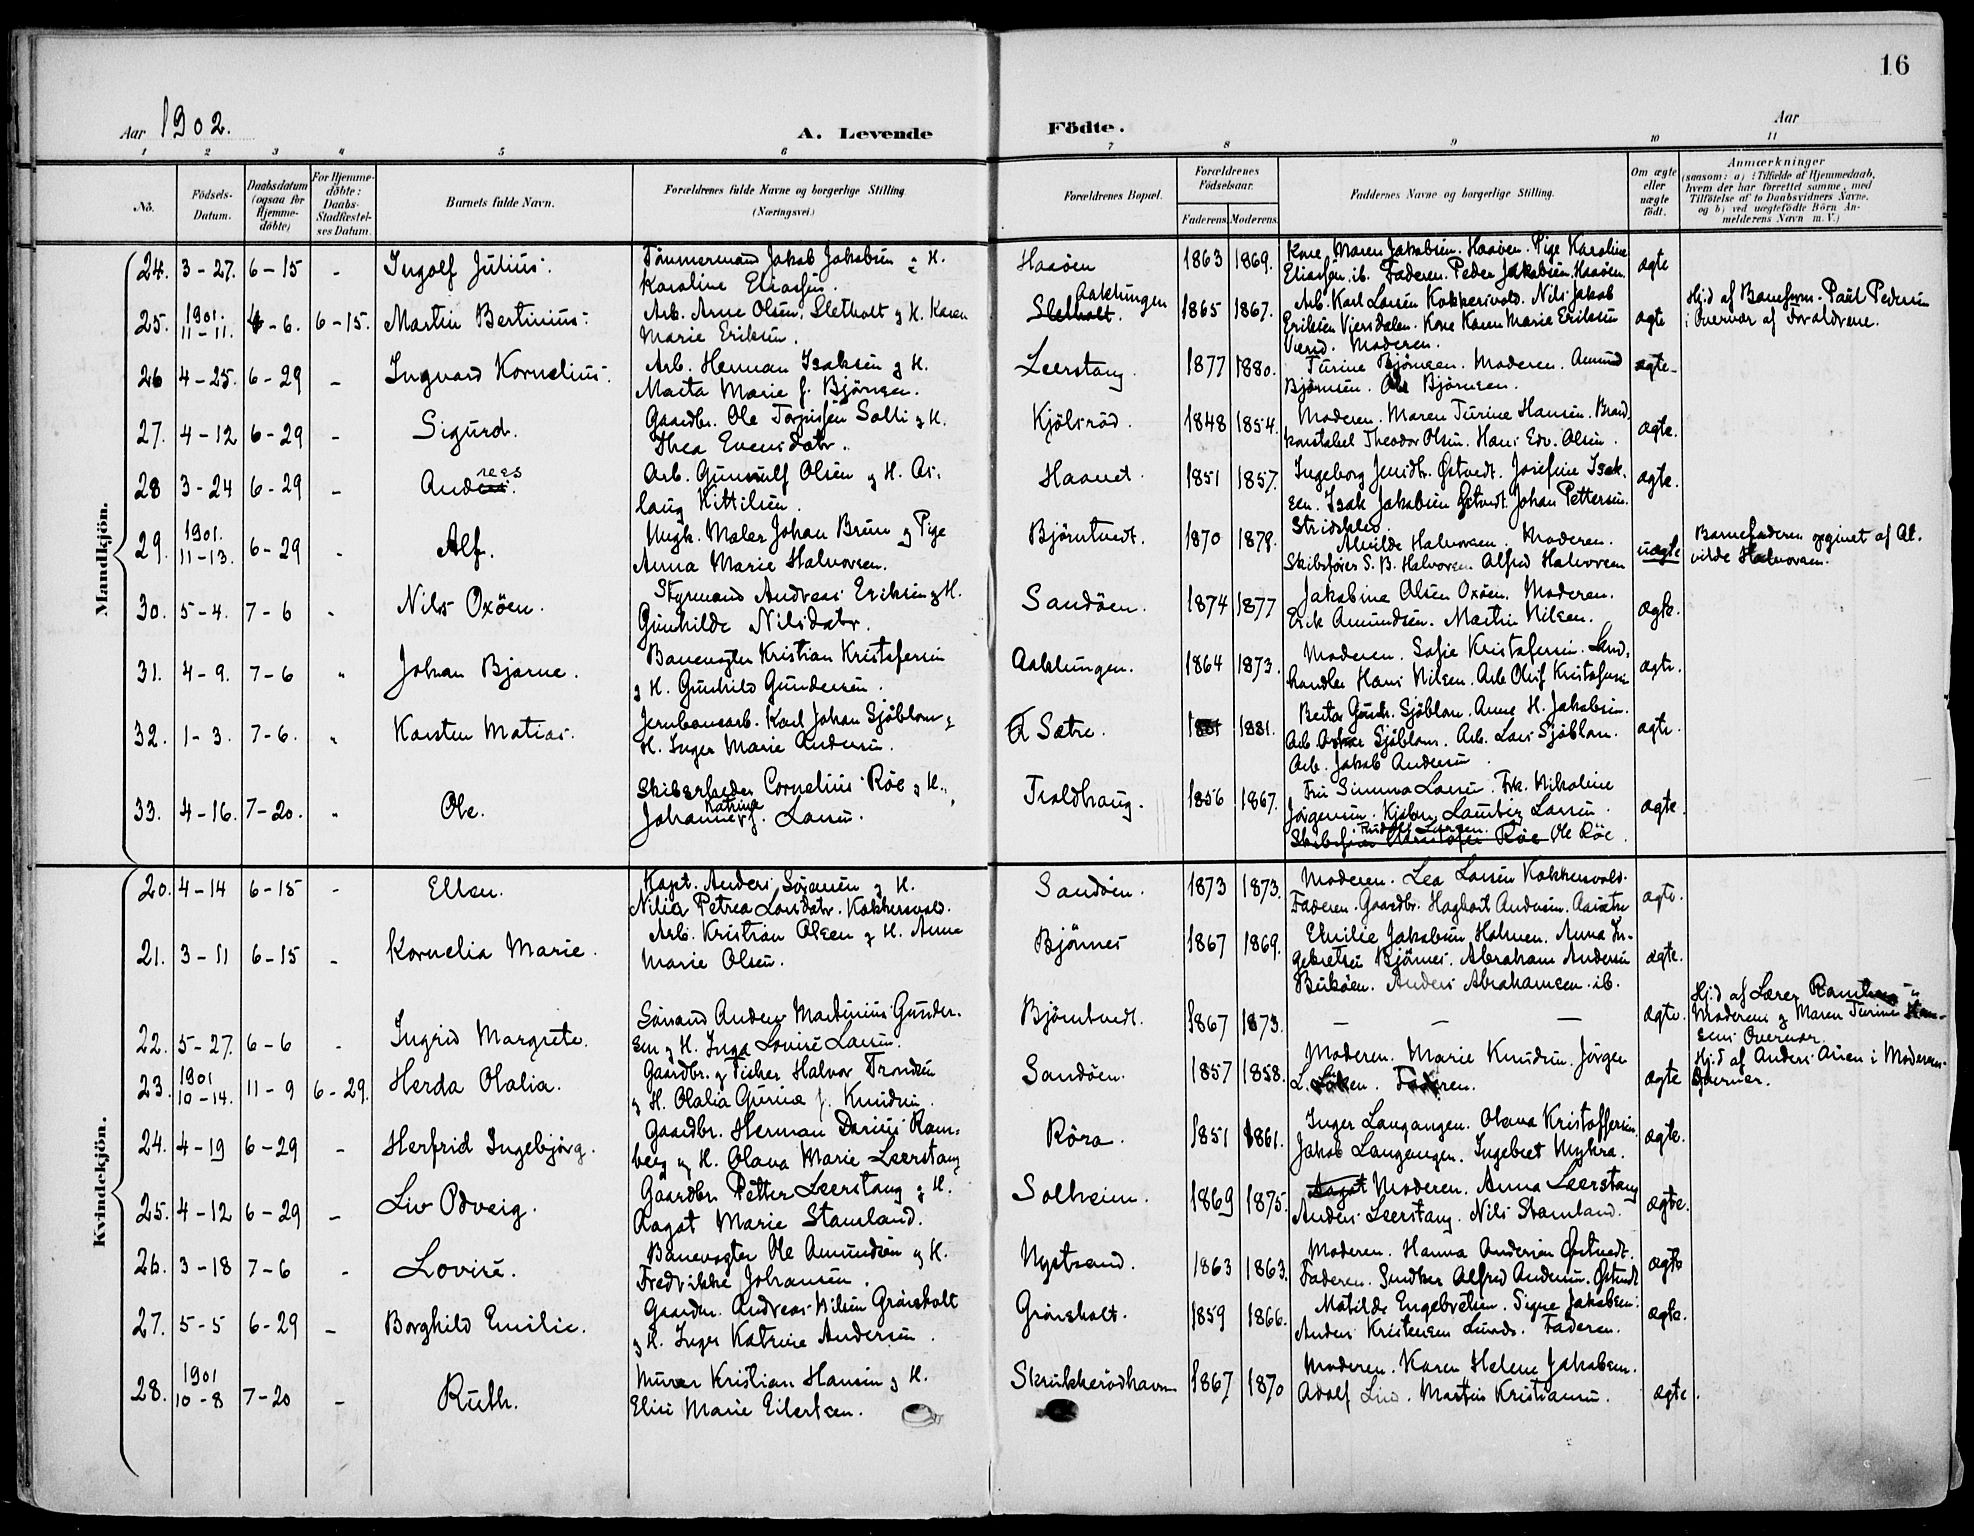 16
Aar 1902.
A. Levende Födte.
Aar
1 2 3 4 5 6 7 8 9 10 11
No.
Födsels-Datum.
Daabsdatum (ogsaa for Hjemme-döbte)
For Hjemme-döbte: Daabs-Stadfæstel-ses Datum.
Barnets fulde Navn.
Forældrenes fulde Navne og borgerlige Stilling. (Næringsvei.)
Forældrenes Bopæl.
Forældrenes Födselsaar.
Faderens. Moderens.
Faddernes Navne og borgerlige Stilling.
Om ægte eller uægte födt.
Anmærkninger (saasom: a) i Tilfælde af Hjemmedaab, hvem der har forrettet samme, med Tilföielse af to Daabsvidners Navne, og b) ved uægtefödte Börn An-melderens Navn m. V.)
Mandkjön.
24. 3-27. 6-15 - Ingolf Julius. Tömmermand Jakob Jakobsen & H.
Karoline Eliassen. Haaöen 1863 1869. Kone Maren Jakobsen. Haaöen. Pige Karoline
Eliassen. ib. Faderen. Peder Jakobsen. Haaöen. ægte
25. 1901. 11-11. 4-6. 6-15. Martin Bertinius. Arb. Arne Olsen, Sletholt og H. Karen
Marie Eriksen. Sletholt. Aaklungen 1865 1867. Arb. Karl Larsen Kokkersvold. Nils Jakob
Eriksen Viersdalen. Kone Karen Marie Eriksen
Moderen. ægte Hj.d af Paul Pedersen
i Overvær af Forældrene.
26 4-25. 6-29 - Ingvard Kornelius. Arb. Herman Isaksen og H.
Marta Marie f. Björnsen. Leerstang. 1877 1880. Turine Björnsen. Moderen. Amund
Björnsen. Ole Björnsen. ægte
27. 4-12 6-29 - Sigurd. Gaardbr. Ole Torgusen Solli og H.
Thea Evensdatr. Kjölsröd. 1848 1854. Moderen. Maren Turine Hansen. Brand
konstabel Theodor Olsen. Hans Edv. Olsen. ægte.
28 3-24 6-29 - Andreas. Arb. Gunnulf Olsen og H. As-
laug Kittilsen. Haanet. 1851 1857. Ingeborg Jensdtr. Østvedt. Josefine Isak-
sen. Isak Jakobsen Østvedt. Johan Pettersen.
Stridsklev. ægte.
29. 1901. 11-13. 6-29 - Alf. Ungk. Maler Johan Brun og Pige
Anna Marie Halvorsen. Björntvedt. 1870 1879. Alvilde Halvorsen. Moderen.
Skibsförer S. B. Halvorsen. Alfred Halvorsen uægte Barnefaderen opgivet af Al-
vilde Halvorsen.
30. 5-4. 7-6 - Nils Oxöen. Styrmand Andreas Eriksen og H.
Gunhilde Nilsdatr. Sandöen. 1874 1877 Jakobine Olsen Oxöen. Moderen.
Erik Amundsen. Martin Nilsen. ægte.
31. 4-9. 7-6 " Johan Bjarne. Banevogter Kristian Kristofersen
og H. Gunhild Gundersen. Aaklungen. 1864 1873. Moderen. Sofie Kristofersen. Land-
handler Hans Nilsen. Arb. Oluf Kristofersen ægte.
32. 1-3. 7-6. " Karsten Matias. Jernbanearb. Karl Johan Sjöblom og
H. Inger Marie Andersen. Sætre. 1881. Berta Sjöblom. Anne H. Jakobsen.
Arb. Oskar Sjöblom. Arb. Lars Sjöblom.
Arb. Jakob Andersen. ægte.
33. 4-16. 7-20. " Ole. Skibsrheder Cornelius Röe og H.
Johanne Katrine f. Larsen. Troldhaug. 1856 1867. Fru Simma Larsen. Frk. Nikoline
Jörgensen. Kjöbm. Lauritz Larsen.
Rudolf Larsen.
Skibsförer Christofer Röe Ole Röe. ægte.
Kvindekjön.
20. 4-14 6-15 - Ellen. Kapt. Anders Sörensen og H.
Nilia Petrea Larsdatr. Kokkersvold. Sandöen. 1873 1873. Moderen. Lea Larsen Kokkersvold.
Faderen. Gaardbr. Hagbart Andersen. ægte.
21. 3-11 6-15 - Kornelia Marie. Arb. Kristian Olsen og H. Anne
Marie Olsen. Björnnes 1867 1869. Emilie Jakobsen Holmen. Anna In-
gebretsen Björnnes. Abraham Andersen
Anders Abrahamsen. ib. ægte.
22. 5-27. 6-6 - Ingrid Margrete. Sömand Anders Martinius Gunder-
sen og H. Inga Lovise Larsen. Björntvedt. 1867 1873. - - - ægte. Hj.d af Lærer Ramberg i
Moderens og Maren Turine Han-
sens Overvær.
23. 1901 10-14. 11-9 6-29. Herda Olalia. Gaardbr. og Fisker Halvor Trondsen
og H. Olalia Gurine f. Knudsen. Sandöen. 1857 1858. Moderen. Marie Knudsen. Jörgen
L. Faderen. ægte Hj.d af Anders i Moderens
Overvær.
24. 4-19 6-29 - Herfrid Ingebjörg. Gaardbr. Herman Darius Ram-
berg og H. Olava Marie Leerstang Röra. 1851 1861. Inger Langangen. Olava Kristoffersen.
Jakob Langangen. Ingebret Myhra. ægte.
25. 4-12 6-29 - Liv Odveig. Gaardbr. Petter Leerstang og H.
Aagot Marie Stamland. Solheim. 1869 1875. Aagot Moderen. Anna Leerstang
Anders Leerstang. Nils Stamland. ægte.
26. 3-18 7-6 - Lovise. Banevogter Ole Amundsen og H.
Fredrikke Johansen. Nystrand. 1863 1863. Moderen. Hanna Andersen Østvedt.
Faderen. Snedker Alfred Andersen. Østvedt ægte
27. 5-5 6-29 - Borghild Emilie. Gaardm. Andreas Nilsen Grönsholt
og H. Inger Katrine Andersen. Grönsholt. 1859 1866. Matilde Engebretsen. Signe Jakobsen.
Anders Kristensen Lunde. Faderen. ægte.
28. 1901 10-8 7-20 - Ruth. Murer Kristian Hansen og H.
Elise Marie Eilertsen. Skrukkerödhavn 1867 1870 Moderen. Karen Helene Jakobsen.
Adolf Martin Kristiansen. ægte.